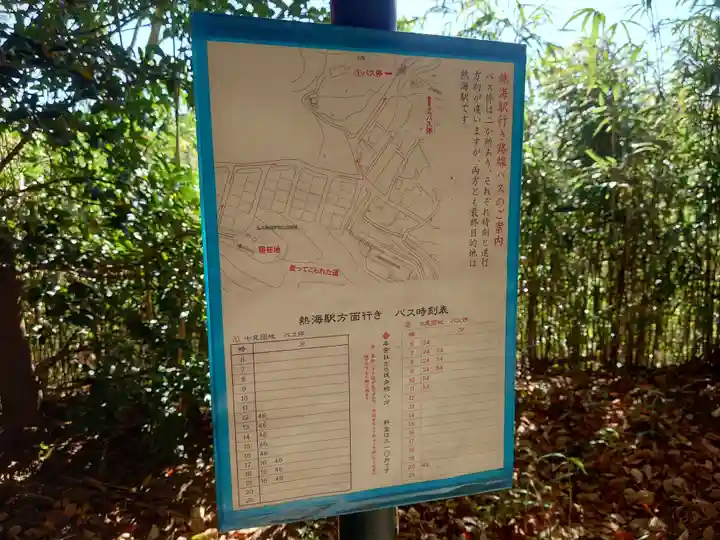 熱海駅行き路線バスのご案内
バス停は二か所あり、それぞれ時刻と進行
方向が違いますが、両方とも最終目的地は
熱海駅です
①バス停
②バス停
現在地
登ってこられた道
熱海駅方面行き バス時刻表
① 七尾団地 バス停
時 分
6
7
8
9
10
11
12 46
13 46
14 46
15 46
16 46
17 16 46
18 16 46
19 16 46
20
21
② バス停
時 分
6 54
7 24 54
8 24 54
9 24 54
10 54
11 54
12
13
14
15
16
17
18
19
20 46
21